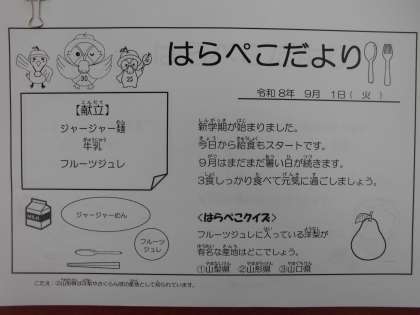 はらぺこだより
令和8年 9月 1日( 火 )
【献立】
ジャージャー麺
牛乳
フルーツジュレ
新学期が始まりました。
今日から給食もスタートです。
9月はまだまだ暑い日が続きます。
3食しっかり食べて元気に過ごしましょう。
ジャージャーめん
フルーツ
ジュレ
MILK
<はらぺこクイズ>
フルーツジュレに入っている洋梨が
有名な産地はどこでしょう。
①山梨県 ②山形県 ③山口県
こたえ:②山形県は洋梨やさくらんぼの産地として知られています。